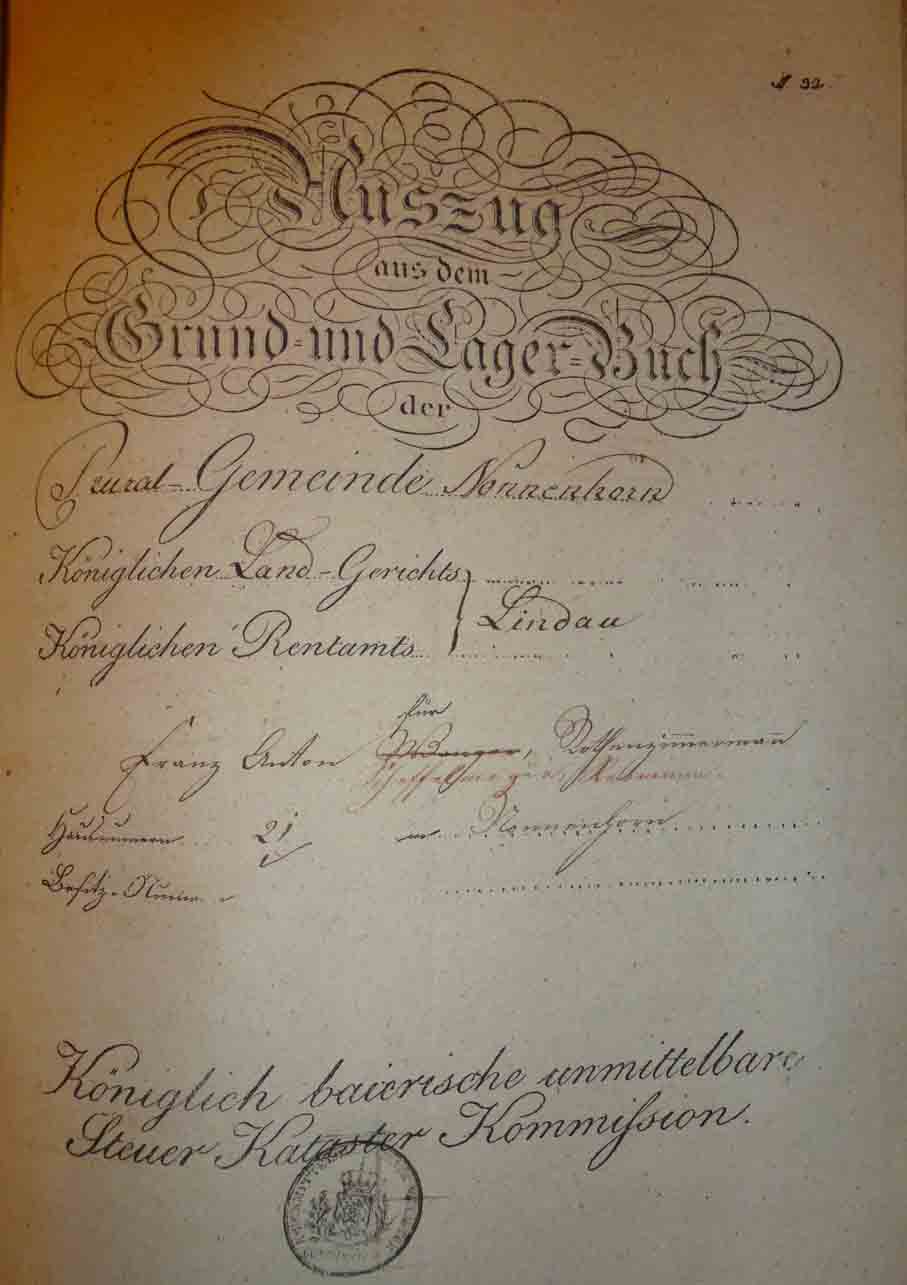 N. 32.
Auszug
aus dem
Grund- und Lager-Buch
der
Rural-Gemeinde Nonnenhorn
Königlichen Land-Gerichts
Lindau
Königlichen Rentamts
für
Franz Anton
Hausnummern 21 in Nonnenhorn
Besitz-Numer
Königlich baierische unmittelbare
Steuer Kataster Kommission.